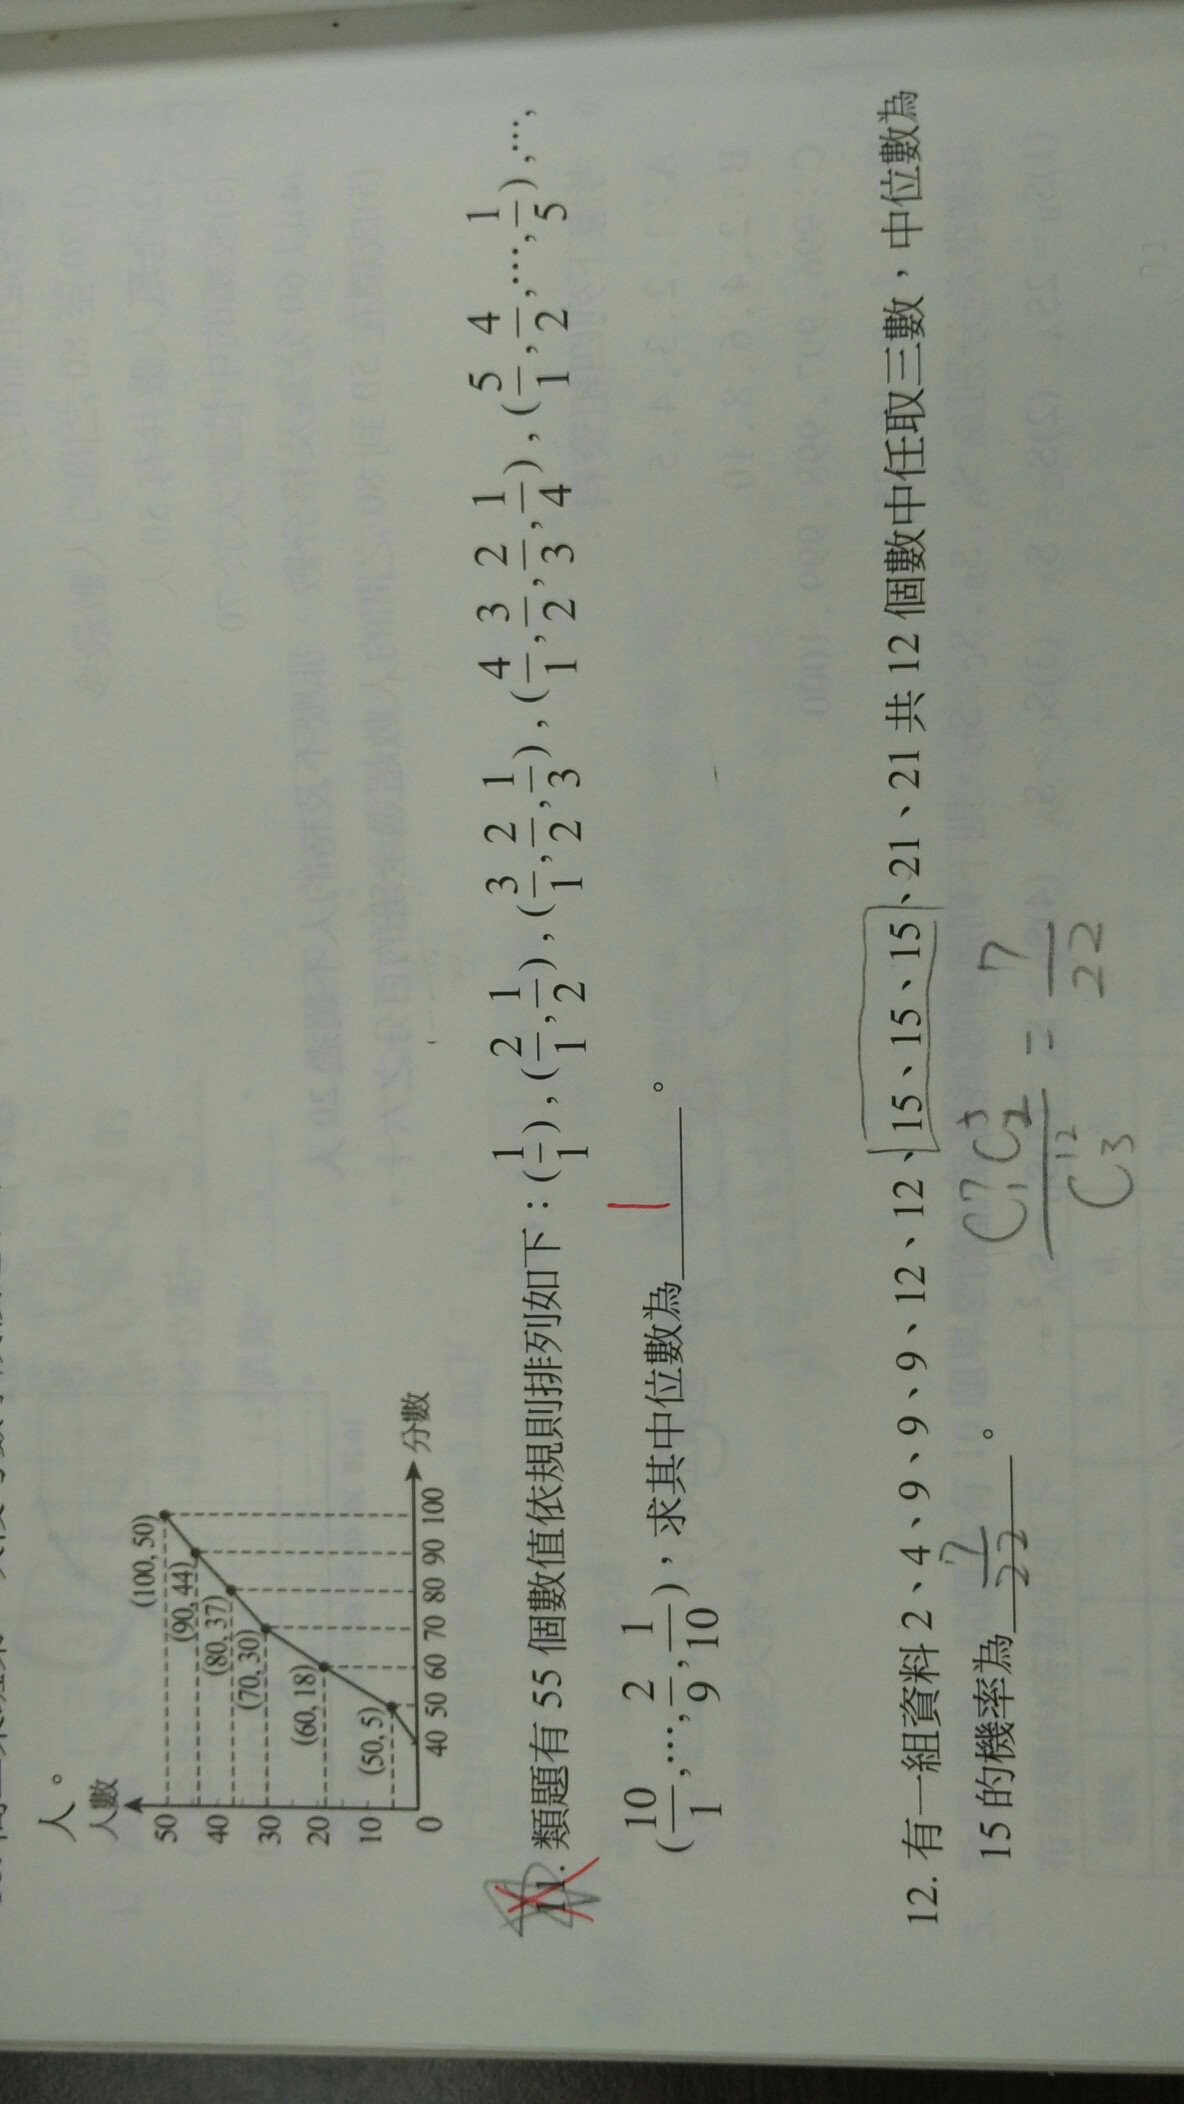 人。
人數
50
40
30
20
10
0
40 50 60 70 80 90 100
分數
(50, 5)
(60, 18)
(70, 30)
(80, 37)
(90, 44)
(100, 50)
11. 類題有 55 個數值依規則排列如下：(1/1), (2/1, 1/2), (3/1, 2/2, 1/3), (4/1, 3/2, 2/3, 1/4), (5/1, 4/2, …, 1/5), …,
(10/1, …, 2/9, 1/10)，求其中位數為 1 。
12. 有一組資料 2、4、9、9、9、12、12、15、15、15、21、21 共 12 個數中任取三數，中位數為
15 的機率為 7/22 。
= 7/22